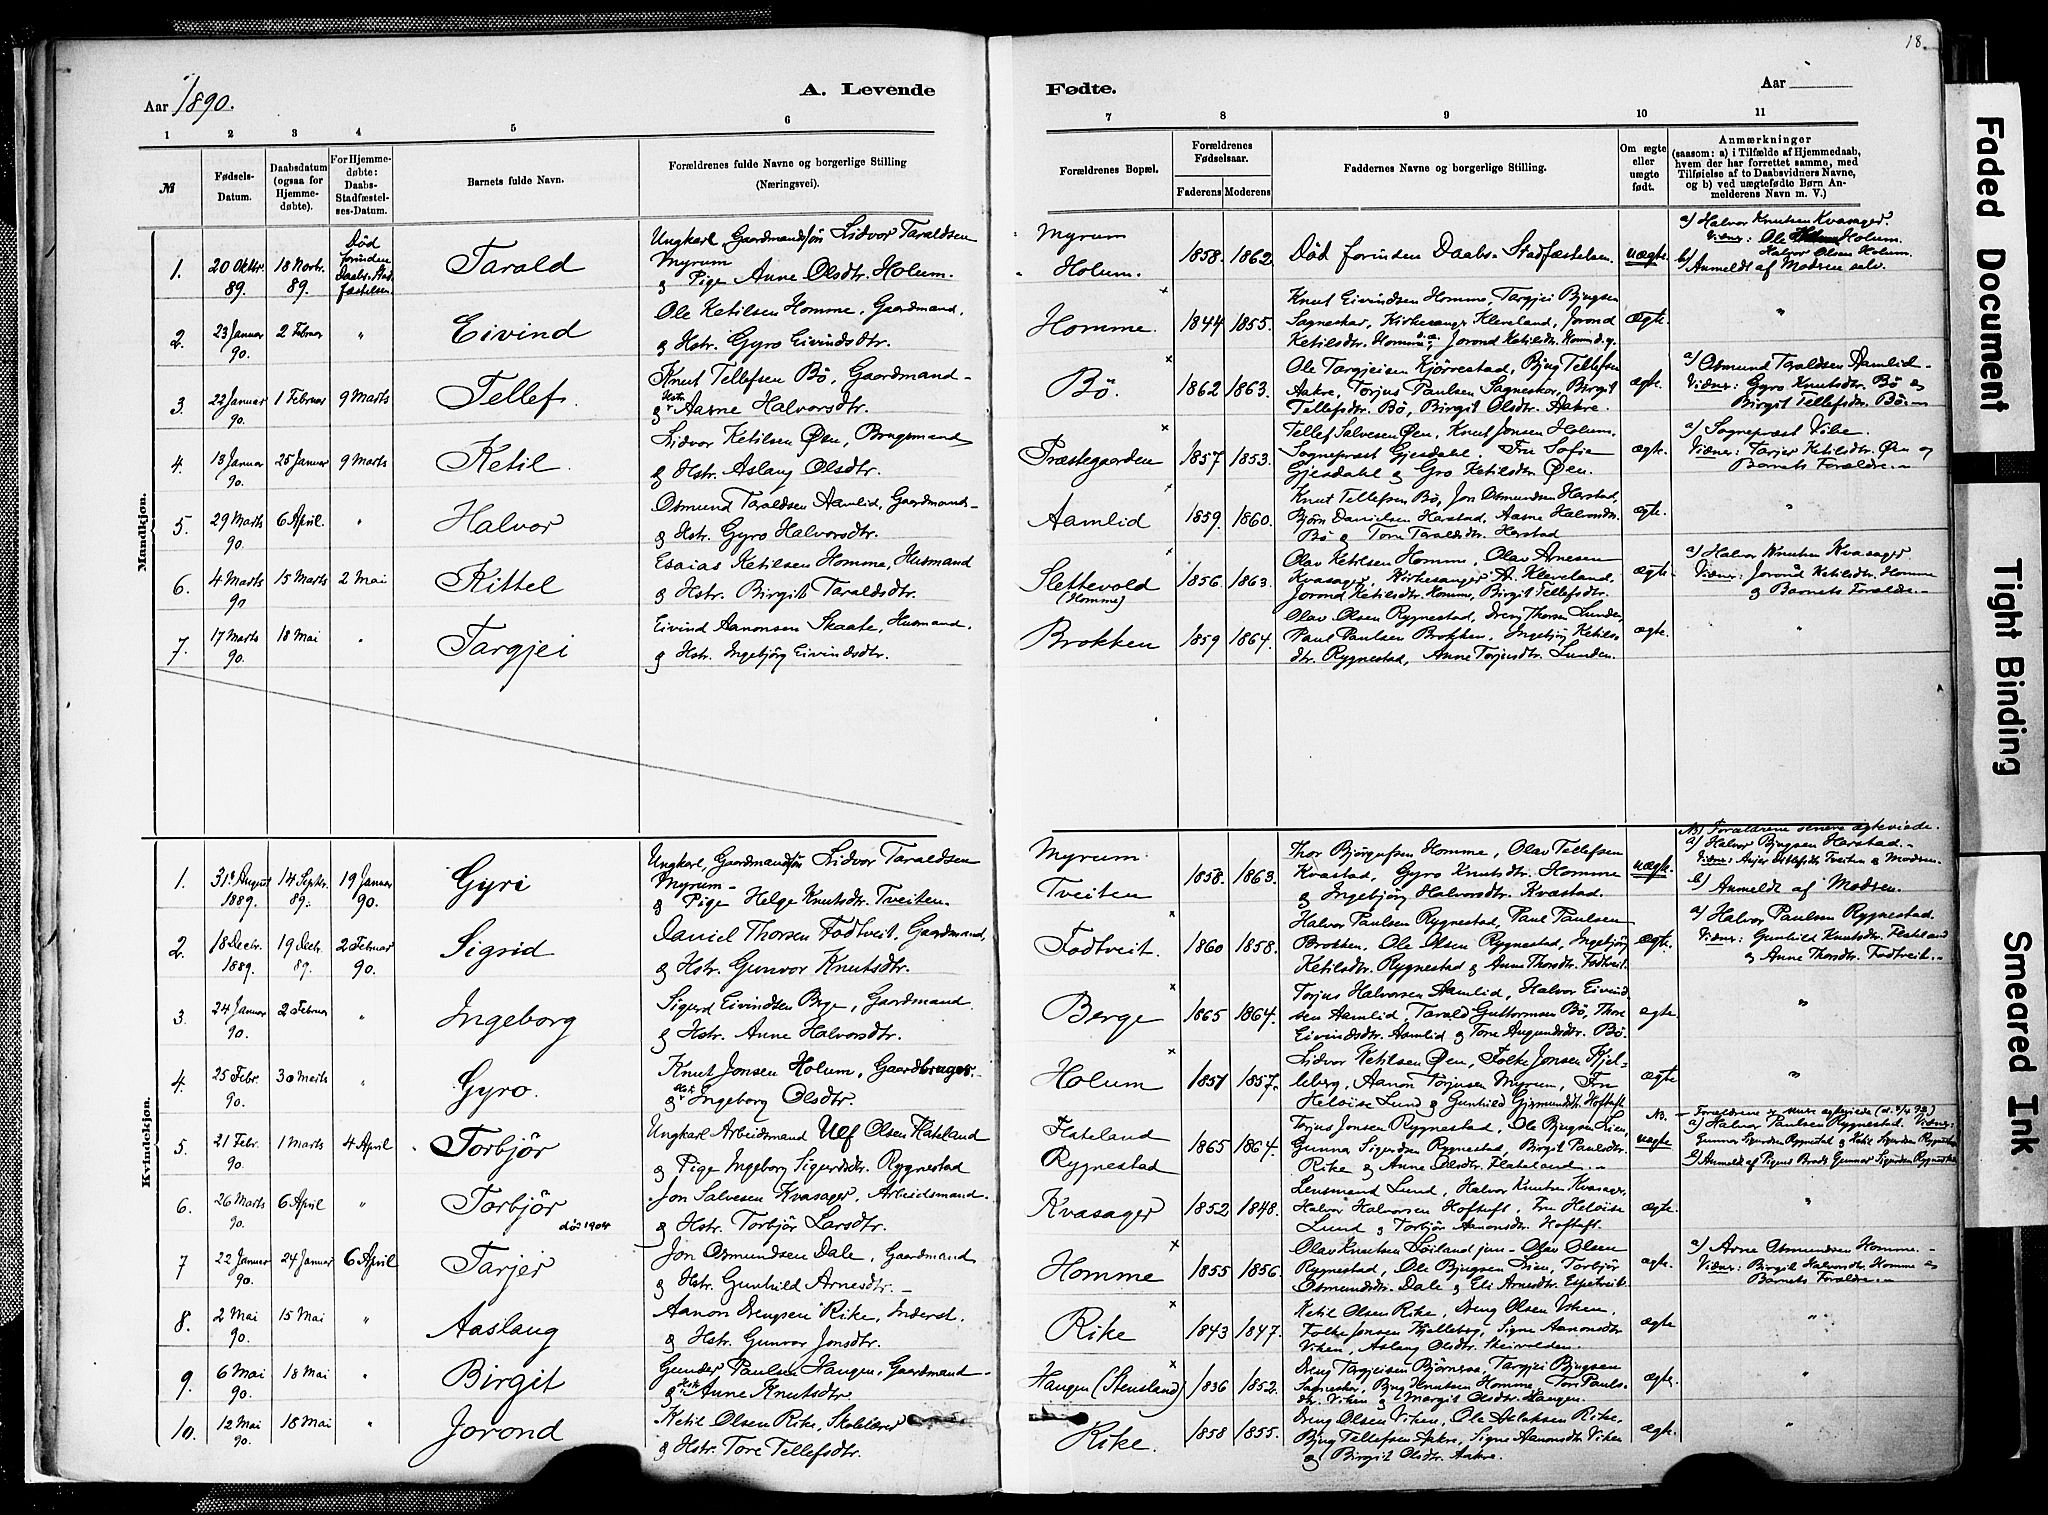 18.
Aar 1890.
A. Levende
Fødte.
Aar
1 2 3 4 5 6 7 8 9 10 11
№
Fødsels-Datum.
Daabsdatum (ogsaa for Hjemme-døbte).
For Hjemme-døbte: Daabs-Stadfæstel-ses-Datum.
Barnets fulde Navn.
Forældrenes fulde Navne og borgerlige Stilling
(Næringsvei).
Forældrenes Bopæl.
Forældrenes Fødselsaar.
Faderens Moderens
Faddernes Navne og borgerlige Stilling.
Om ægte eller uægte født.
Anmærkninger
(saasom: a) i Tilfælde af Hjemmedaab,
hvem der har forrettet samme, med
Tilføielse af to Daabsvidners Navne,
og b) ved uægtefødte Børn An-
melderens Navn m. V.)
Mandkjøn.
1. 20 Oktbr. 89. 18 Novbr. 89. Død forinden Daabs-Stadfæstelsen. Tarald
Ungkarl Gaardmandssøn Lidvor Taraldsen
Myrum
& Pige Anne Olsdtr. Holum.
Myrum
Holum.
1858. 1862. Død forinden Daabs-Stadfæstelsen. uægte.
a) Halvor Knutsen Kvasager.
Vidner: Ole Holum.
Halvor Olsen Holum.
b) Anmeldt af Modren selv.
2. 23 Januar 90. 2 Februar " Eivind
Ole Ketilsen Homme, Gaardmand,
& Hstr. Gyro Eivindsdtr.
Homme. 1844 1855.
Knut Eivindsen Homme, Targjei Bjugsen
Sagneskar, Kirkesanger Kleveland, Jorond
Ketilsdtr. Homme d.æ., Jorond Ketilsdtr. Homme d.y.
ægte. "
3. 22 Januar 90. 1 Februar 9 Marts Tellef.
Knut Tellefsen Bö, Gaardmand
& Hstr. Aasne Halvorsdtr.
Bö. 1862 1863.
Ole Targjeisen Kjörrestad, Bjug Tellefsen
Aakre, Torjus Paulsen Sagneskor, Birgit
Tellefsdtr. Bö, Birgit Olsdtr. Aakre.
ægte.
a) Osmund Taraldsen Aamlid
Vidner: Gyro Knutsdtr. Bö &
Birgit Tellefsdtr. Bö.
4. 13 Januar 90. 25 Januar 9 Marts Ketil.
Lidvor Ketilsen Öen, Brugsmand
& Hstr. Aslaug Olsdtr.
Præstegaarden 1857 1853.
Tellef Salvesen Öen, Knut Jonsen Holum.
Sogneprest Gjesdahl. Fru Sofie
Gjesdahl & Gro Ketilsdtr. Öen.
ægte.
a) Sogneprest Vibe.
Vidner: Tarjer Ketilsdtr. Öen &
Barnets Forældre.
5. 29 Marts 90. 6 April. " Halvor
Osmund Taraldsen Aamlid, Gaardmand
& Hstr. Gyro Halvorsdtr.
Aamlid 1859. 1860.
Knut Tellefsen Bö, Jon Osmundsen Harstad,
Björn Danielsen Harstad, Aasne Halvorsdtr.
Bö & Tore Taraldsdtr. Harstad
ægte. "
6. 4 Marts 90 15 Marts 2 Mai Kittel
Esaias Ketilsen Homme, Husmand
& Hstr. Birgit Taraldsdtr.
Slettevold (Homme) 1856. 1863.
Olav Ketilsen Homme, Olav Arnesen
Kvasager, Kirkesanger A. Kleveland,
Jorond Ketilsdtr. Homme, Birgit Tellefsdtr.
ægte.
a) Halvor Knutsen Kvasager
Vidner: Jorond Ketilsdtr. Homme
& Barnets Forældre.
7. 17 Marts 90. 18 Mai " Targjei
Eivind Aanonsen Skaate, Husmand.
& Hstr. Ingebjörg Eivindsdtr.
Brokken 1859 1864.
Olav Olsen Rygnestad, Dreng Thorsen Lunden
Paul Paulsen Brokken, Ingebjörg Ketils-
dtr. Rygnestad, Anne Torjusdtr. Lunden.
ægte. "
Kvindekjøn.
1. 31te August 1889. 14 Septbr. 89. 19 Januar 90. Gyri
Ungkarl, Gaardmandssøn Lidvor Taraldsen
Myrum
& Pige Helge Knutsdtr. Tveiten.
Myrum
Tveiten
1858. 1863.
Thor Björgufsen Homme, Olav Tellefsen
Kvastad, Gyro Knutsdtr. Homme
& Ingebjörg Halvorsdtr. Kvæstad.
uægte.
NB) Forældrene senere ægteviede.
a) Halvor Bjugsen Harstad.
b) Anmeldt af Modren.
2. 18 Decbr. 1889. 19 Decbr. 89. 2 Februar 90. Sigrid
Daniel Thorsen Fodtveit, Gaardmand,
& Hstr. Gunvor Knutsdtr.
Fodtveit. 1860 1858.
Halvor Paulsen Rygnestad, Paul Paulsen
Brokken, Ole Olsen Rygnestad, Ingebjörg
Ketilsdtr. Rygnestad & Anne Thorsdtr. Fodtveit.
ægte.
a) Halvor Paulsen Rygnestad.
Vidner: Gunhild Knutsdtr. Flateland
& Anne Thorsdtr. Fodtveit.
3. 24 Januar 90. 2 Februar " Ingeborg
Sigurd Eivindsen Berge, Gaardmand
& Hstr. Anne Halvorsdtr.
Berge 1865 1864.
Torjus Halvorsen Aamlid, Halvor Eivind-
sen Aamlid, Tarald Guttormsen Bö, Thore
Eivindsdtr. Aamlid & Tore Augundsdtr. Bö.
ægte "
4. 25 Febr. 90. 30 Marts " Gyro.
Knut Jonsen Holum, Gaardbruger.
& Hstr. Ingeborg Olsdtr.
Holum 1857 1857.
Lidvor Ketilsen Öen, Folke Jonsen Kjel-
leberg, Aanon Torjusen Myrum, Fru
Heloise Lund & Gunhild Gjermundsdtr. Hoftuft.
ægte "
5 21 Febr. 90. 1 Marts 4 April Torbjör
Ungkarl Arbeidsmand Ulf Olsen Flateland
& Pige Ingeborg Sigurdsdtr. Rygnestad
Flateland
Rygnestad
1865 1864.
Torjus Jonsen Rygnestad, Ole Bjugsen Lien,
Gunnar Sigurdsen Rygnestad, Birgit Paulsdtr.
Rike & Anne Olsdtr. Flateland.
uægte
NB.
a) Halvor Paulsen Rygnestad. Vidner:
Gunnar Sigurdsen Rygnestad & Ketil Sigurdsen Rygnestad
b) Anmeldt af Pigens Broder Gunnar Sigurdsen Rygnestad
6. 26 Marts 90. 6 April " Torbjör
død 1904
Jon Salvesen Kvasager, Arbeidsmand.
& Hstr. Torbjör Larsdtr.
Kvasager 1852 1848.
Lensmand Lund, Halvor Knutsen Kvasager,
Halvor Halvorsen Hoftuft, Fru Heloise
Lund & Torbjör Aanonsdtr. Hoftuft.
ægte. "
7 22 Januar 90. 24 Januar 6 April Tarjer
Jon Osmundsen Dale, Gaardmand
& Hstr. Gunhild Arnesdtr.
Homme 1855 1856.
Olav Knutsen Löiland jun. Olav Olsen
Rygnestad, Ole Bjugsen Lien, Torbjör
Osmundsdtr. Dale & Eli Arnesdtr. Espetveit.
ægte.
a) Arne Osmundsen Homme.
Vidner: Birgit Halvorsdtr. Homme &
Barnets Forældre.
8. 2 Mai 90. 15 Mai " Aaslaug
Aanon Drengsen Rike, Inderst.
& Hstr. Gunvor Jonsdtr.
Rike 1843 1847.
Ketil Olsen Rike, Dreng Olsen Viken.
Folke Jonsen Kjelleberg, Signe Aanonsdtr
Viken, Aslaug Olsdtr. Skeivolden.
ægte "
9. 6 Mai 90. 18 Mai " Birgit
Gunder Paulsen Haugen, Gaardmand
& Hstr. Anne Knutsdtr.
Haugen (Stensland) 1836 1852.
Dreng Targjeisen Björnaraa, Targjei Bjugsen
Sagneskar, Bjug Knutsen Homme, Tore Pauls-
dtr. Viken & Margit Olsdtr. Haugen.
ægte. "
10. 12 Mai 90. 18 Mai " Jorond
Ketil Olsen Rike, Skolelærer
& Hstr. Tore Tellefsdtr.
Rike. 1858 1855.
Dreng Olsen Viken, Ole Aslaksen Rike,
Bjug Tellefsen Aakre, Signe Aanonsdtr. Viken
& Birgit Olsdtr. Aakre.
ægte. "
Faded Document
Tight Binding
Smeared Ink